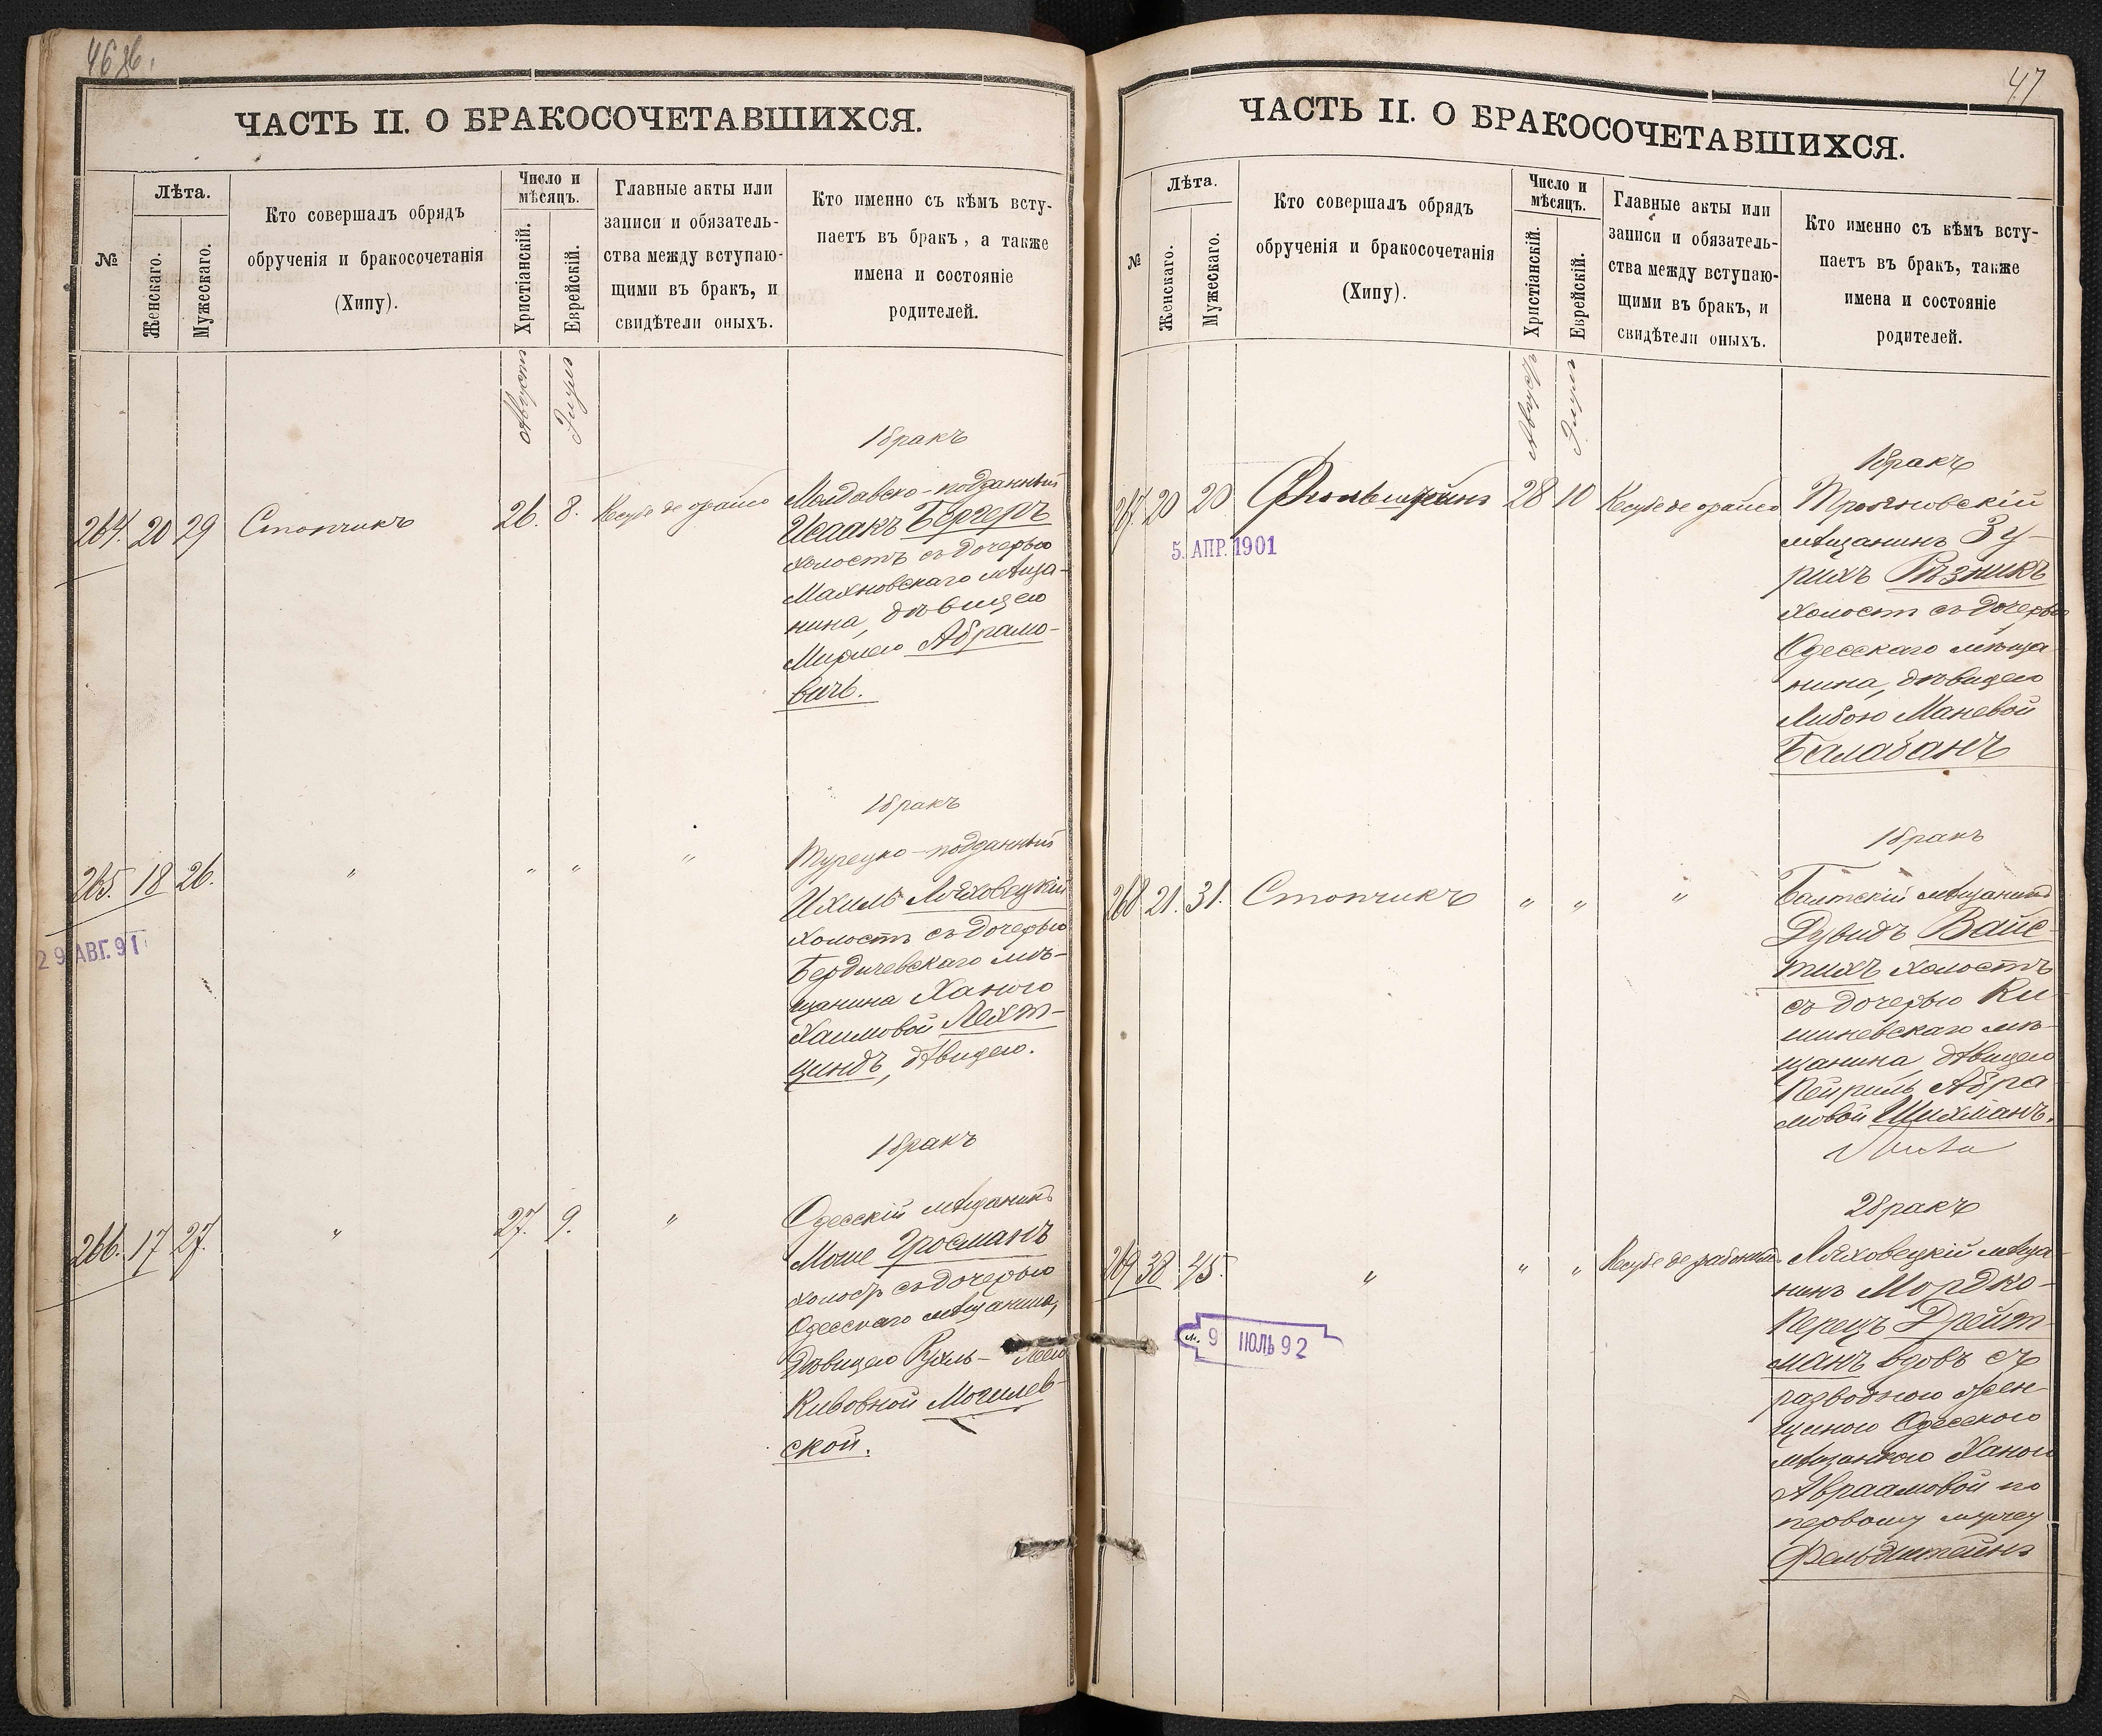 46 об.
ЧАСТЬ II. О БРАКОСОЧЕТАВШИХСЯ.
№
Лѣта.
Женскаго.
Мужескаго.
Кто совершалъ обрядъ
обрученія и бракосочетанія
(Хипу).
Число и
мѣсяцъ.
Христіанскій.
Еврейскій.
Главные акты или
записи и обязатель-
ства между вступаю-
щими въ бракъ, и
свидѣтели оныхъ.
Кто именно съ кѣмъ всту-
паетъ въ бракъ, а также
имена и состояніе
родителей.
Августъ
Элулъ
1 бракъ
264. 20 29 Стопчикъ 26. 8. Кесубе де орайсо
Молдавско-подданный
Исаакъ Бергеръ
холостъ съ дочерью
Махновскаго мѣща-
нина, дѣвицею
Мирлею Абрамо-
вичъ.
1 бракъ
265. 18 26. " " " "
Турецко-подданный
Ихиль Ляховецкій
холостъ съ дочерью
Бердичевскаго мѣ-
щанина Ханою
Хаимовой Лехт-
циндъ, дѣвицею.
29 АВГ. 91
1 бракъ
266. 17 27. " 27. 9. "
Одесскій мѣщанинъ
Моше Гросманъ
холостъ съ дочерью
Одесскаго мѣщанина,
дѣвицею Рухль-Леею
Кивовной Могилев-
ской.
47
ЧАСТЬ II. О БРАКОСОЧЕТАВШИХСЯ.
№
Лѣта.
Женскаго.
Мужескаго.
Кто совершалъ обрядъ
обрученія и бракосочетанія
(Хипу).
Число и
мѣсяцъ.
Христіанскій.
Еврейскій.
Главные акты или
записи и обязатель-
ства между вступаю-
щими въ бракъ, и
свидѣтели оныхъ.
Кто именно съ кѣмъ всту-
паетъ въ бракъ, также
имена и состояніе
родителей.
Августъ
Элулъ
1 бракъ
267. 20 20 28 10 Кесубе де орайсо
Трояновскій
мѣщанинъ Зу-
рихъ Рѣзникъ
холостъ съ дочерью
Одесскаго мѣща-
нина, дѣвицею
Либою Маневой
Балабанъ
5. АПР. 1901
1 бракъ
268 21. 31. Стопчикъ " " "
Балтскій мѣщанинъ
Дувидъ Вайс-
тихъ холостъ
съ дочерью Ки-
шиневскаго мѣ-
щанина, дѣвицею
Пейриль Абра-
мовой Шихманъ.
2 бракъ
269 38 45. " " " Кесубе де рабонимъ
Ляховецкій мѣща-
нинъ Мордко-
Перецъ Дрейт-
манъ вдовъ съ
разводною жен-
щиною Одесскою
мѣщанкою Ханою
Авраамовой по
первому мужу
Фельдштейнъ
9 ІЮЛЬ 92